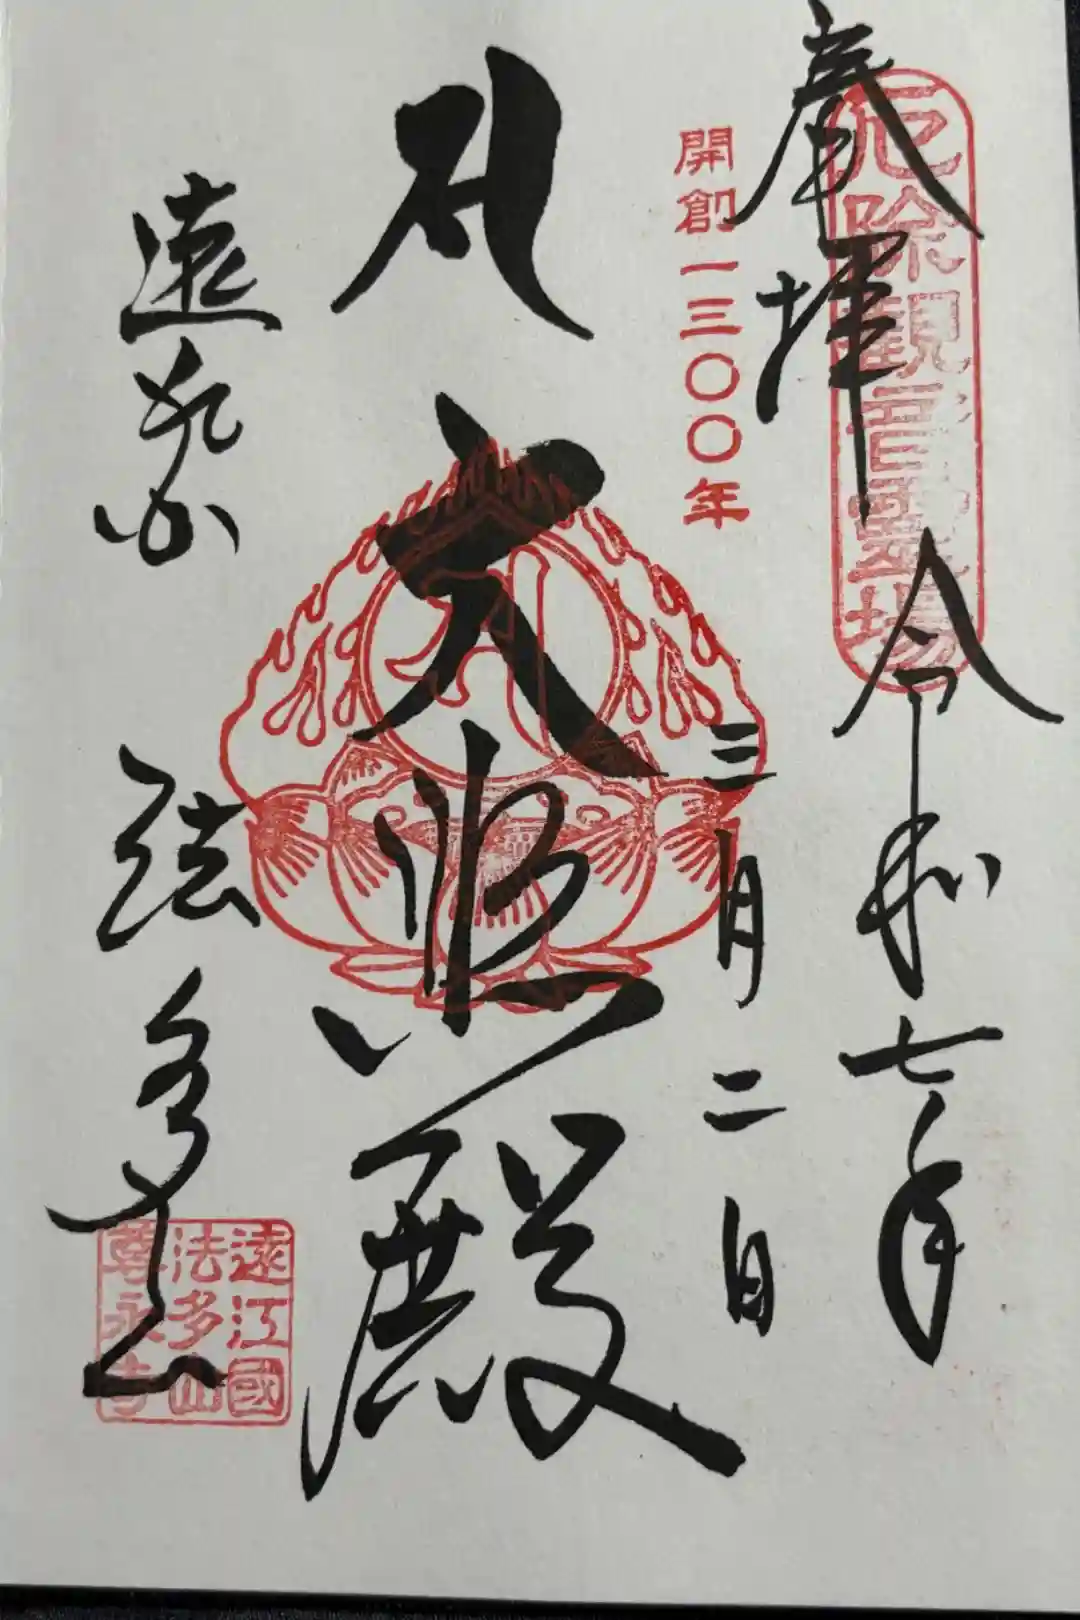 奉拝
厄除観音霊場
令和七年
開創一三〇〇年
三月二日
大悲殿
遠州 法多山
遠江國
法多山
尊永寺